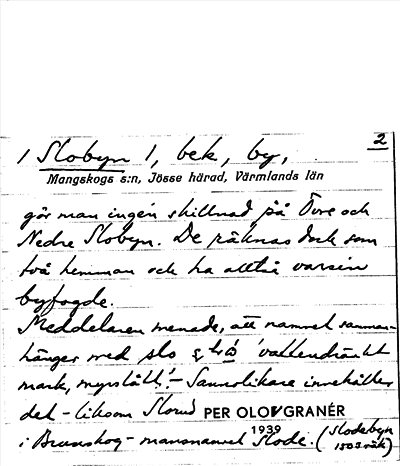 2
/ Slobyn /, bek, by,
Mangskogs s:n, Jösse härad, Värmlands län
gör man ingen skillnad på Övre och
Nedre Slobyn. De räknas dock som
två hemman och ha alltså varsin
byfogde.
Meddelaren menade, att namnet samman-
hänger med slo 'vattendränkt
mark, myrslått'. – Sannolikare innehåller
det – liksom Slorud PER OLOV GRANÉR
1939
i Brunskog – mansnamnet Slode. (Slodebyn
1503 räk)